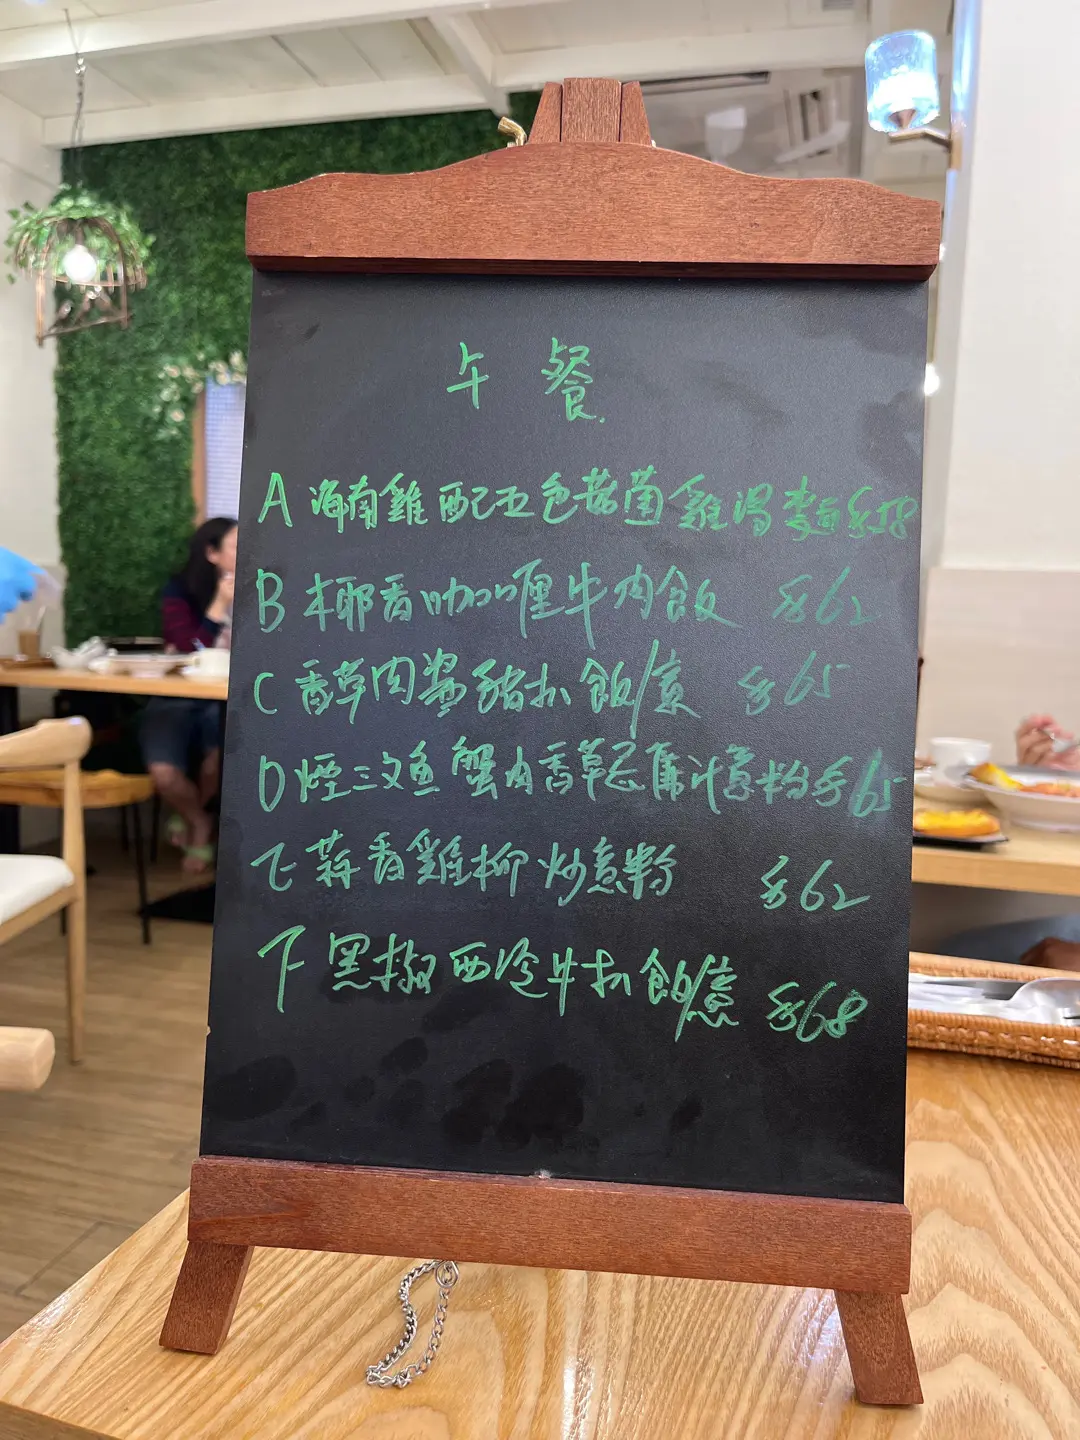 午 餐
A 海南雞配五色菇菌雞湯麵 $58
B 椰香咖喱牛肉飯 $62
C 香草肉醬豬扒飯/意 $65
D 煙三文魚蟹肉香草忌廉汁意粉 $65
E 蒜香雞柳炒意粉 $62
F 黑椒西冷牛扒飯/意 $68